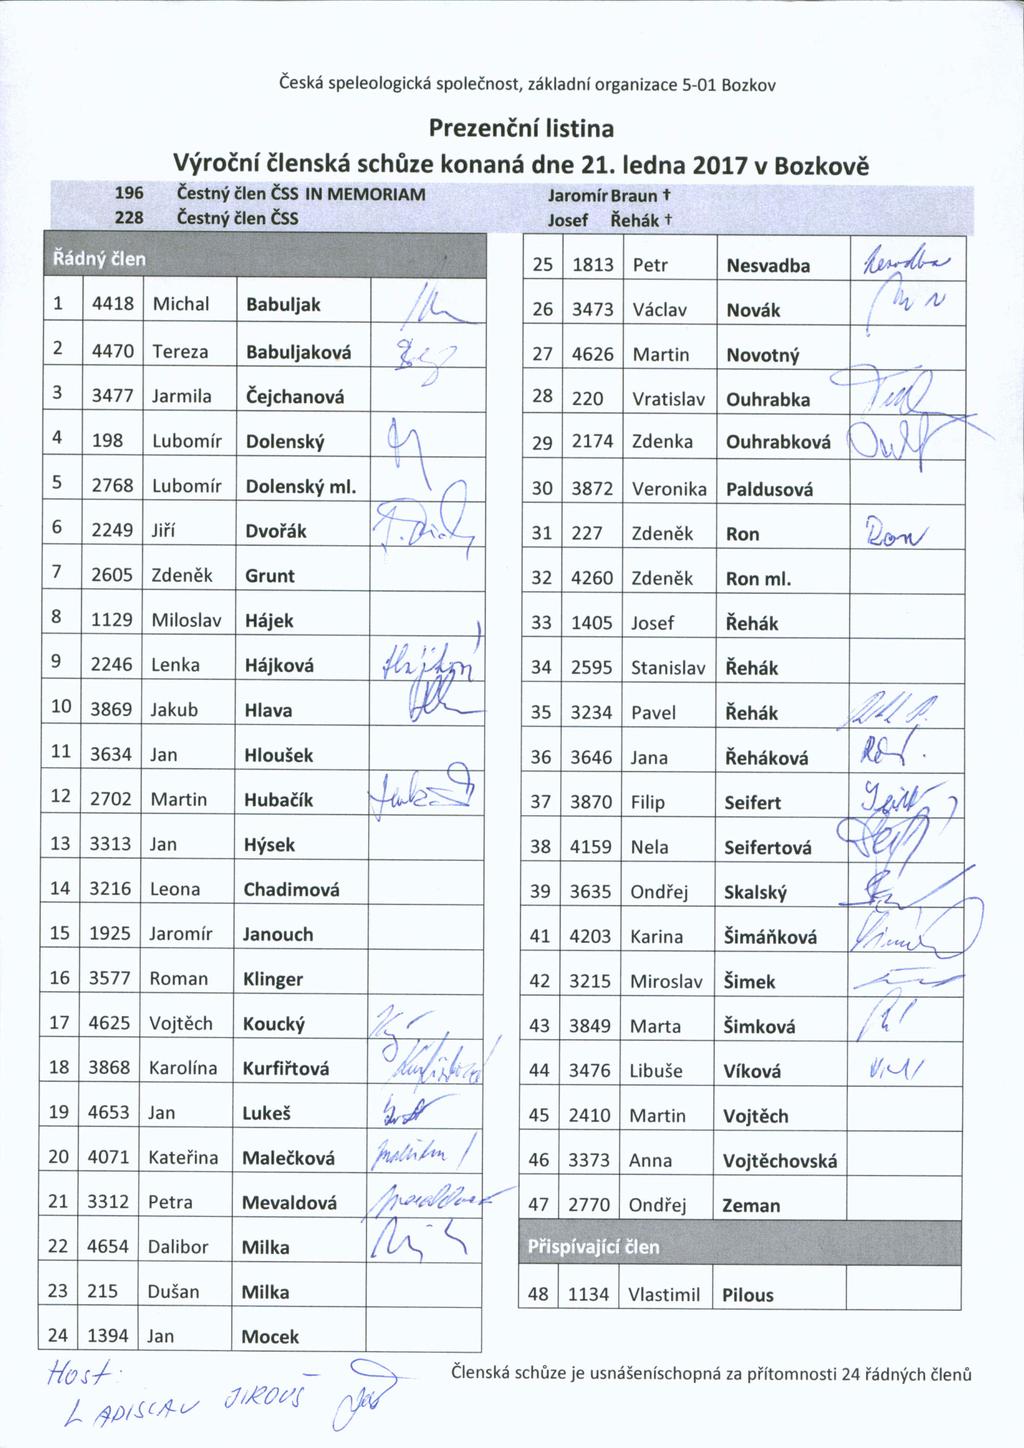 Česká speleologická společnost, základní organizace 5-01 Bozkov
Prezenční listina
Výroční členská schůze konaná dne 21. ledna 2017 v Bozkově
196 Čestný člen ČSS IN MEMORIAM Jaromír Braun †
228 Čestný člen ČSS Josef Řehák †
Řádný člen
1 4418 Michal Babuljak
2 4470 Tereza Babuljaková
3 3477 Jarmila Čejchanová
4 198 Lubomír Dolenský
5 2768 Lubomír Dolenský ml.
6 2249 Jiří Dvořák
7 2605 Zdeněk Grunt
8 1129 Miloslav Hájek
9 2246 Lenka Hájková
10 3869 Jakub Hlava
11 3634 Jan Hloušek
12 2702 Martin Hubačík
13 3313 Jan Hýsek
14 3216 Leona Chadimová
15 1925 Jaromír Janouch
16 3577 Roman Klinger
17 4625 Vojtěch Koucký
18 3868 Karolína Kurfiřtová
19 4653 Jan Lukeš
20 4071 Kateřina Malečková
21 3312 Petra Mevaldová
22 4654 Dalibor Milka
23 215 Dušan Milka
24 1394 Jan Mocek
25 1813 Petr Nesvadba Nesvadba
26 3473 Václav Novák
27 4626 Martin Novotný
28 220 Vratislav Ouhrabka
29 2174 Zdenka Ouhrabková
30 3872 Veronika Paldusová
31 227 Zdeněk Ron Ron
32 4260 Zdeněk Ron ml.
33 1405 Josef Řehák
34 2595 Stanislav Řehák
35 3234 Pavel Řehák
36 3646 Jana Řeháková
37 3870 Filip Seifert
38 4159 Nela Seifertová
39 3635 Ondřej Skalský
41 4203 Karina Šimáňková
42 3215 Miroslav Šimek
43 3849 Marta Šimková
44 3476 Libuše Víková
45 2410 Martin Vojtěch
46 3373 Anna Vojtěchovská
47 2770 Ondřej Zeman
Přispívající člen
48 1134 Vlastimil Pilous
Členská schůze je usnášeníschopná za přítomnosti 24 řádných členů
Host:
LADISLAV JIROUŠ